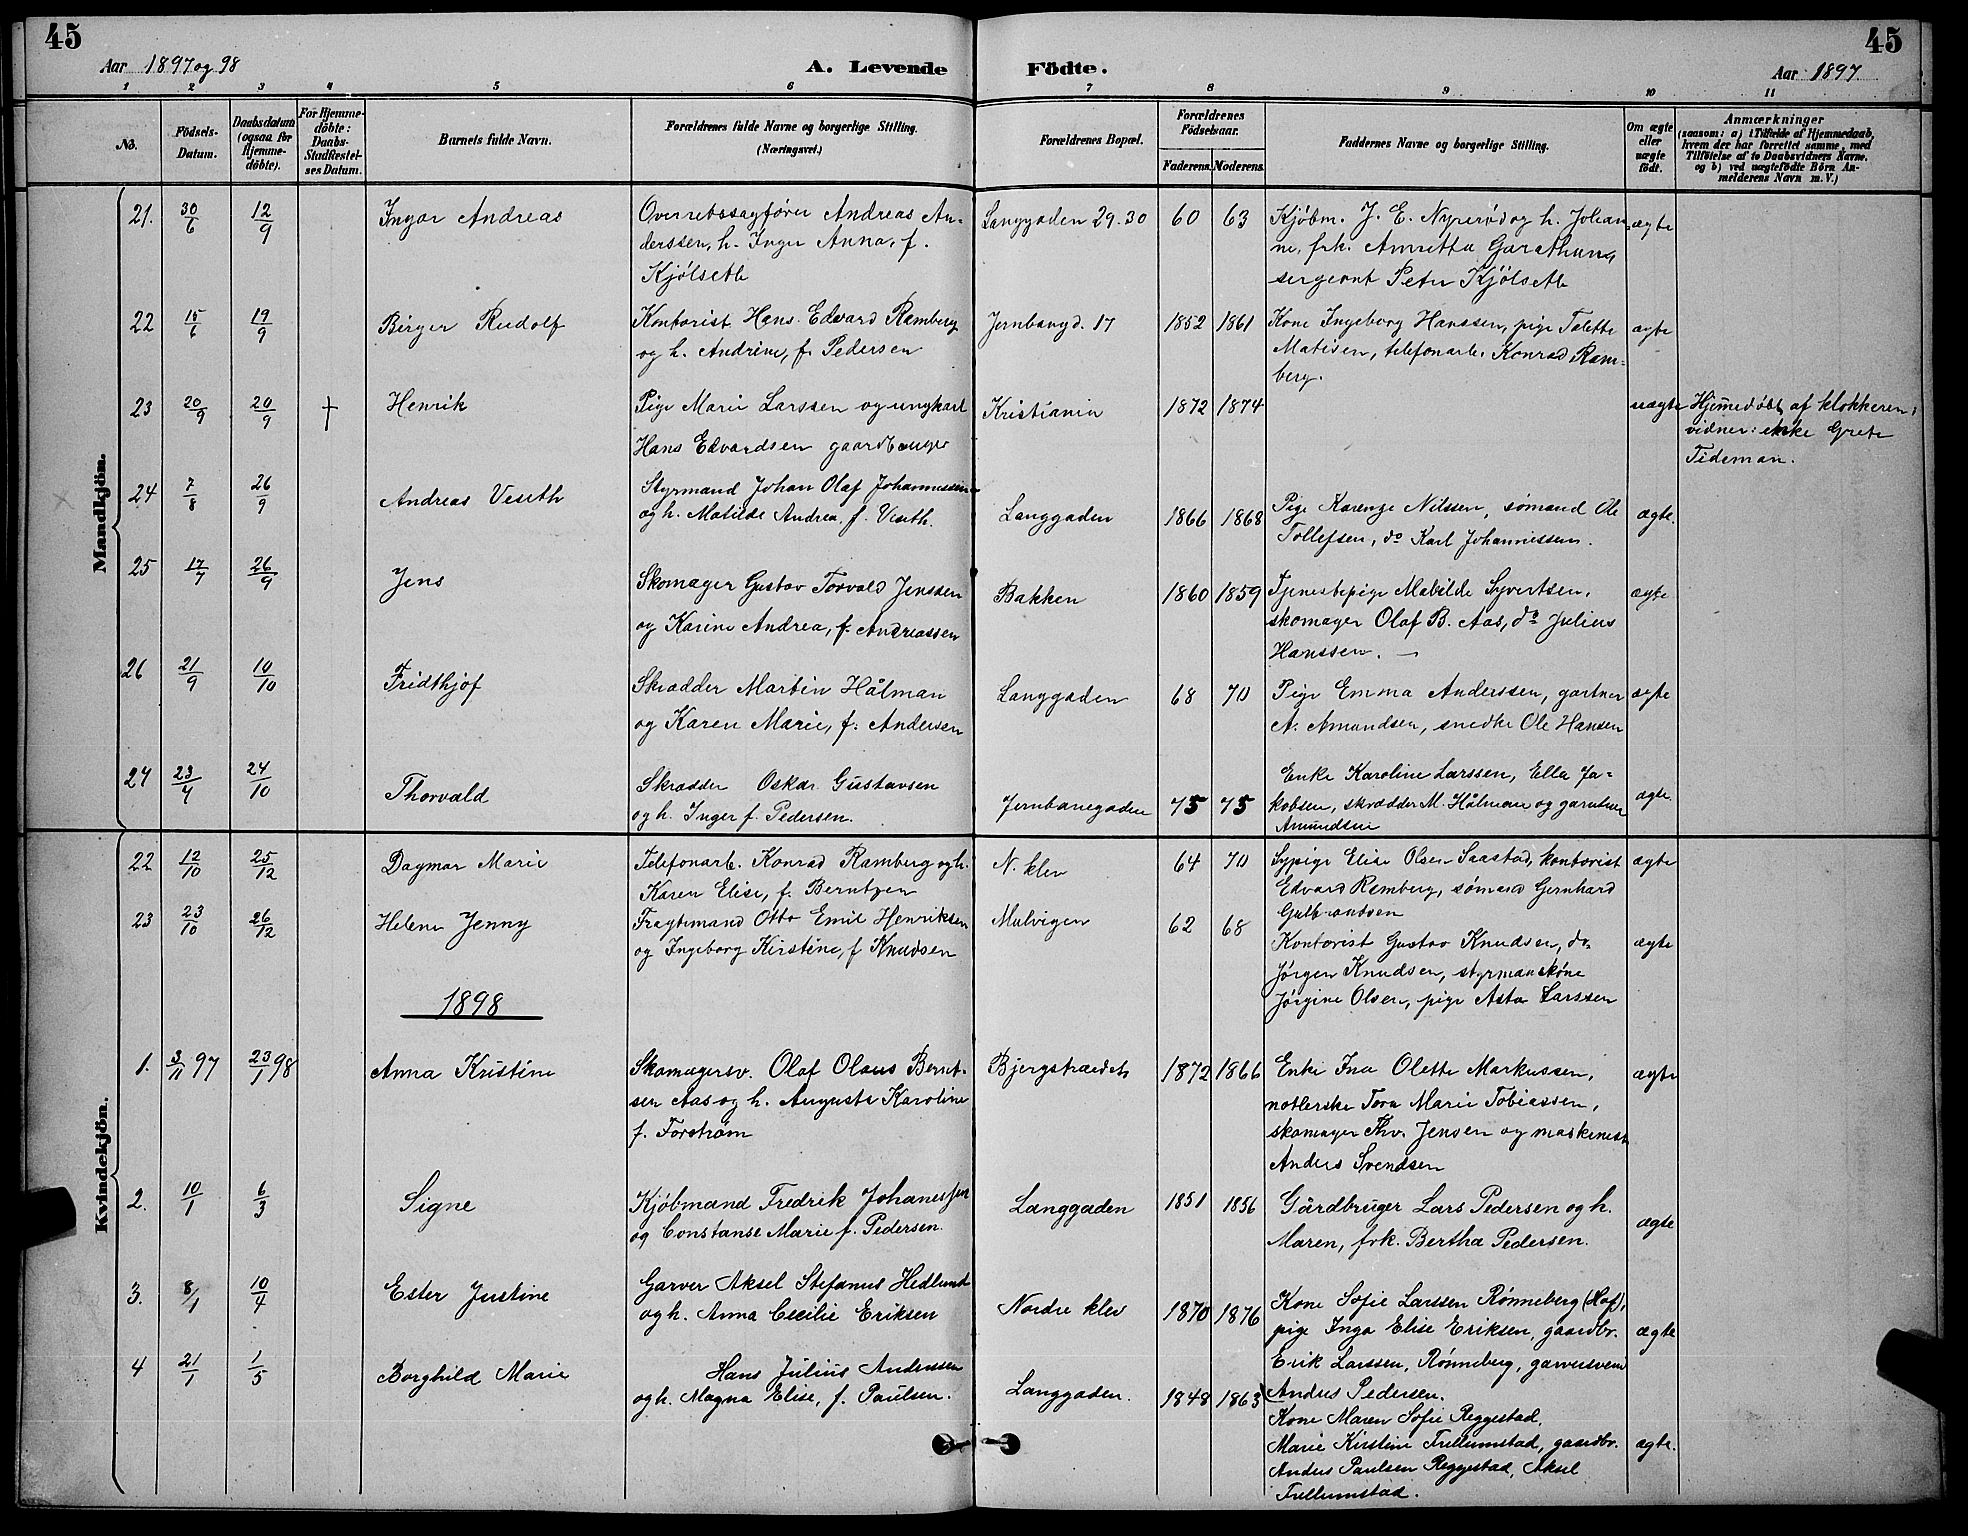 45
45
Aar 1897 og 98
A. Levende Födte.
Aar 1897
1 2 3 4 5 6 7 8 9 10 11
No.
Födsels-
Datum.
Daabsdatum
(ogsaa for
Hjemme-
döbte).
For Hjemme-
döbte:
Daabs-
Stadfæstel-
ses Datum.
Barnets fulde Navn.
Forældrenes fulde Navne og borgerlige Stilling.
(Næringsvei.)
Forældrenes Bopæl.
Forældrenes
Födselsaar.
Faderens.
Moderens.
Faddernes Navne og borgerlige Stilling.
Om ægte
eller
uægte
födt.
Anmærkninger
(saasom: a) i Tilfælde af Hjemmedaab,
hvem der har forrettet samme, med
Tilföielse af to Daabsvidners Navne.
og b) ved uægtefödte Börn An-
melderens Navn m. V.)
Mandkjön.
21. 30/6 12/9 Ingar Andreas
Overretssagfører Andreas An-
derssen, h. Inger Anna, f.
Kjölseth
Langgaden 29.30 60 63
Kjøbm. J. E. Nyrerød og h. Johan-
ne, frk. Annette
sergeant Peter Kjölseth
ægte
22 15/6 19/9 Birger Rudolf
Kontorist Hans Edvard Ramberg
og h. Andrine, f. Pedersen
Jernbangd. 17 1852 1861
Kone Ingeborg Hanssen, pige Talette
Matisen, telefonarb. Konrad Ram-
berg.
ægte
23 20/9 20/9 † Henrik
Pige Marie Larssen og ungkarl
Hans Edvardsen gaardbruger
Kristiania 1872 1874
uægte
Hjemmedøbt af klokkeren;
vidner: enke Grete
Tideman.
24 7/8 26/9 Andreas Veseth
Styrmand Johan Olaf Johannessen
og h. Matilde Andrea, f. Veseth.
Langgaden 1866 1868
Pige Karenze Nilssen, sømand Ole
Tollefsen, do Karl Johannessen.
ægte.
25 17/7 26/9 Jens
Skomager Gustav Torvald Jenssen
og Karine Andrea, f. Andreassen
Bakken 1860 1859
Tjenestepige Mathilde Syvertsen,
skomager Olaf B. Aas, do Julius
Hanssen. —
ægte
26 21/9 10/10 Fridthjof
Skrædder Martin Hålman
og Karen Marie, f. Andersen
Langgaden 68 70
Pige Emma Anderssen, gartner
A. Amundsen, snedker Ole Hansen
ægte
27 23/4 24/10 Thorvald
Skrædder Oskar Gustavsen
og h. Inger f. Pedersen.
Jernbanegaden 75 75
Enke Karoline Larssen, Ella Ja-
kobsen, skrædder M. Hålman og gartner
Amundsen
ægte.
Kvindekjön.
22 12/10 25/12 Dagmar Marie
Telefonarb. Konrad Ramberg og h.
Karen Elise, f. Berntzen
N. klev 64 70
Sypige Elise Olsen Saastad, kontorist
Edvard Ramberg, sømand Gernhard
Gulbrandsen
ægte
23 23/10 26/12 Helene Jenny
Fragtemand Otto Emil Henriksen
og Ingeborg Kirstine, f Knudsen
Mulvigen 62 68
Kontorist Gustav Knudsen, do
Jørgen Knudsen, styrmanskone
Jørgine Olsen, pige Asta Larssen
ægte
1898
1. 3/11 97 23/1 98 Anna Kristine
Skomagersv. Olaf Olaus Bernt-
sen Aas og h. Augusta Karoline
f. Forstrøm
Bjergstrædet 1872 1866
Enke Ina Olette Markussen,
Tora Marie Tobiassen,
skomager Thv. Jensen og maskinist
Anders Svendsen
ægte
2. 10/1 6/3 Signe
Kjöbmand Fredrik Johanesen
og Constanse Marie f. Pedersen.
Langgaden 1851 1856
Gårdbruger Lars Pedersen og h.
Maren, frk. Bertha Pedersen.
ægte
3. 8/1 10/4 Ester Justine
Garver Aksel Stefanus Hedlund
og h. Anna Cecilie Eriksen
Nordre klev 1870 1876
Kone Sofie Larssen Rønneberg (Hof),
pige Inga Elise Eriksen, gaardbr.
Erik Larssen, Rønneberg, garversvend
Anders Pedersen.
ægte
4 21/1 1/5 Borghild Marie
Hans Julius Anderssen
og h. Magna Elise, f. Paulsen.
Langgaden. 1848 1863
Kone Maren Sofie Reggestad,
Marie Kirstine Trellumstad, gaardbr.
Anders Paulsen Reggestad, Aksel
Trellumstad.
ægte.